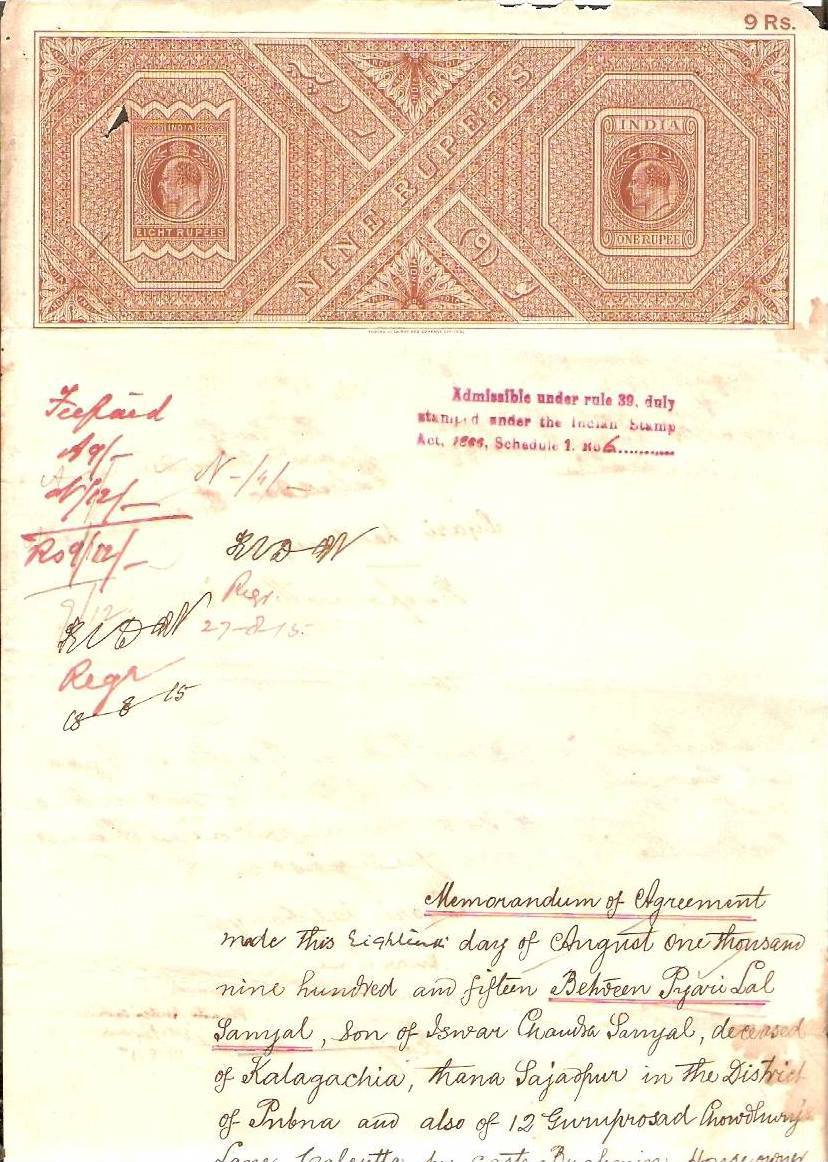 9 Rs.
INDIA
EIGHT RUPEES
NINE RUPEES
(9)
INDIA
ONE RUPEE
Admissible under rule 39, duly
stamped under the Indian Stamp
Act, Schedule 1. No 6..........
Fee paid
A 9/-
N/12/-
Rs 9/12/-
N-/4/-
Regr.
27-8-15
9/12
Regr
18-8-15
Memorandum of Agreement
made this Eighteenth day of August one thousand
nine hundred and fifteen Between Pyari Lal
Sanyal, Son of Iswar Chandra Sanyal, deceased
of Kalagachia, thana Sajadpur in the District
of Pubna and also of 12 Guruprosad Chowdhury's
Lane Calcutta by caste Brahmin House owner